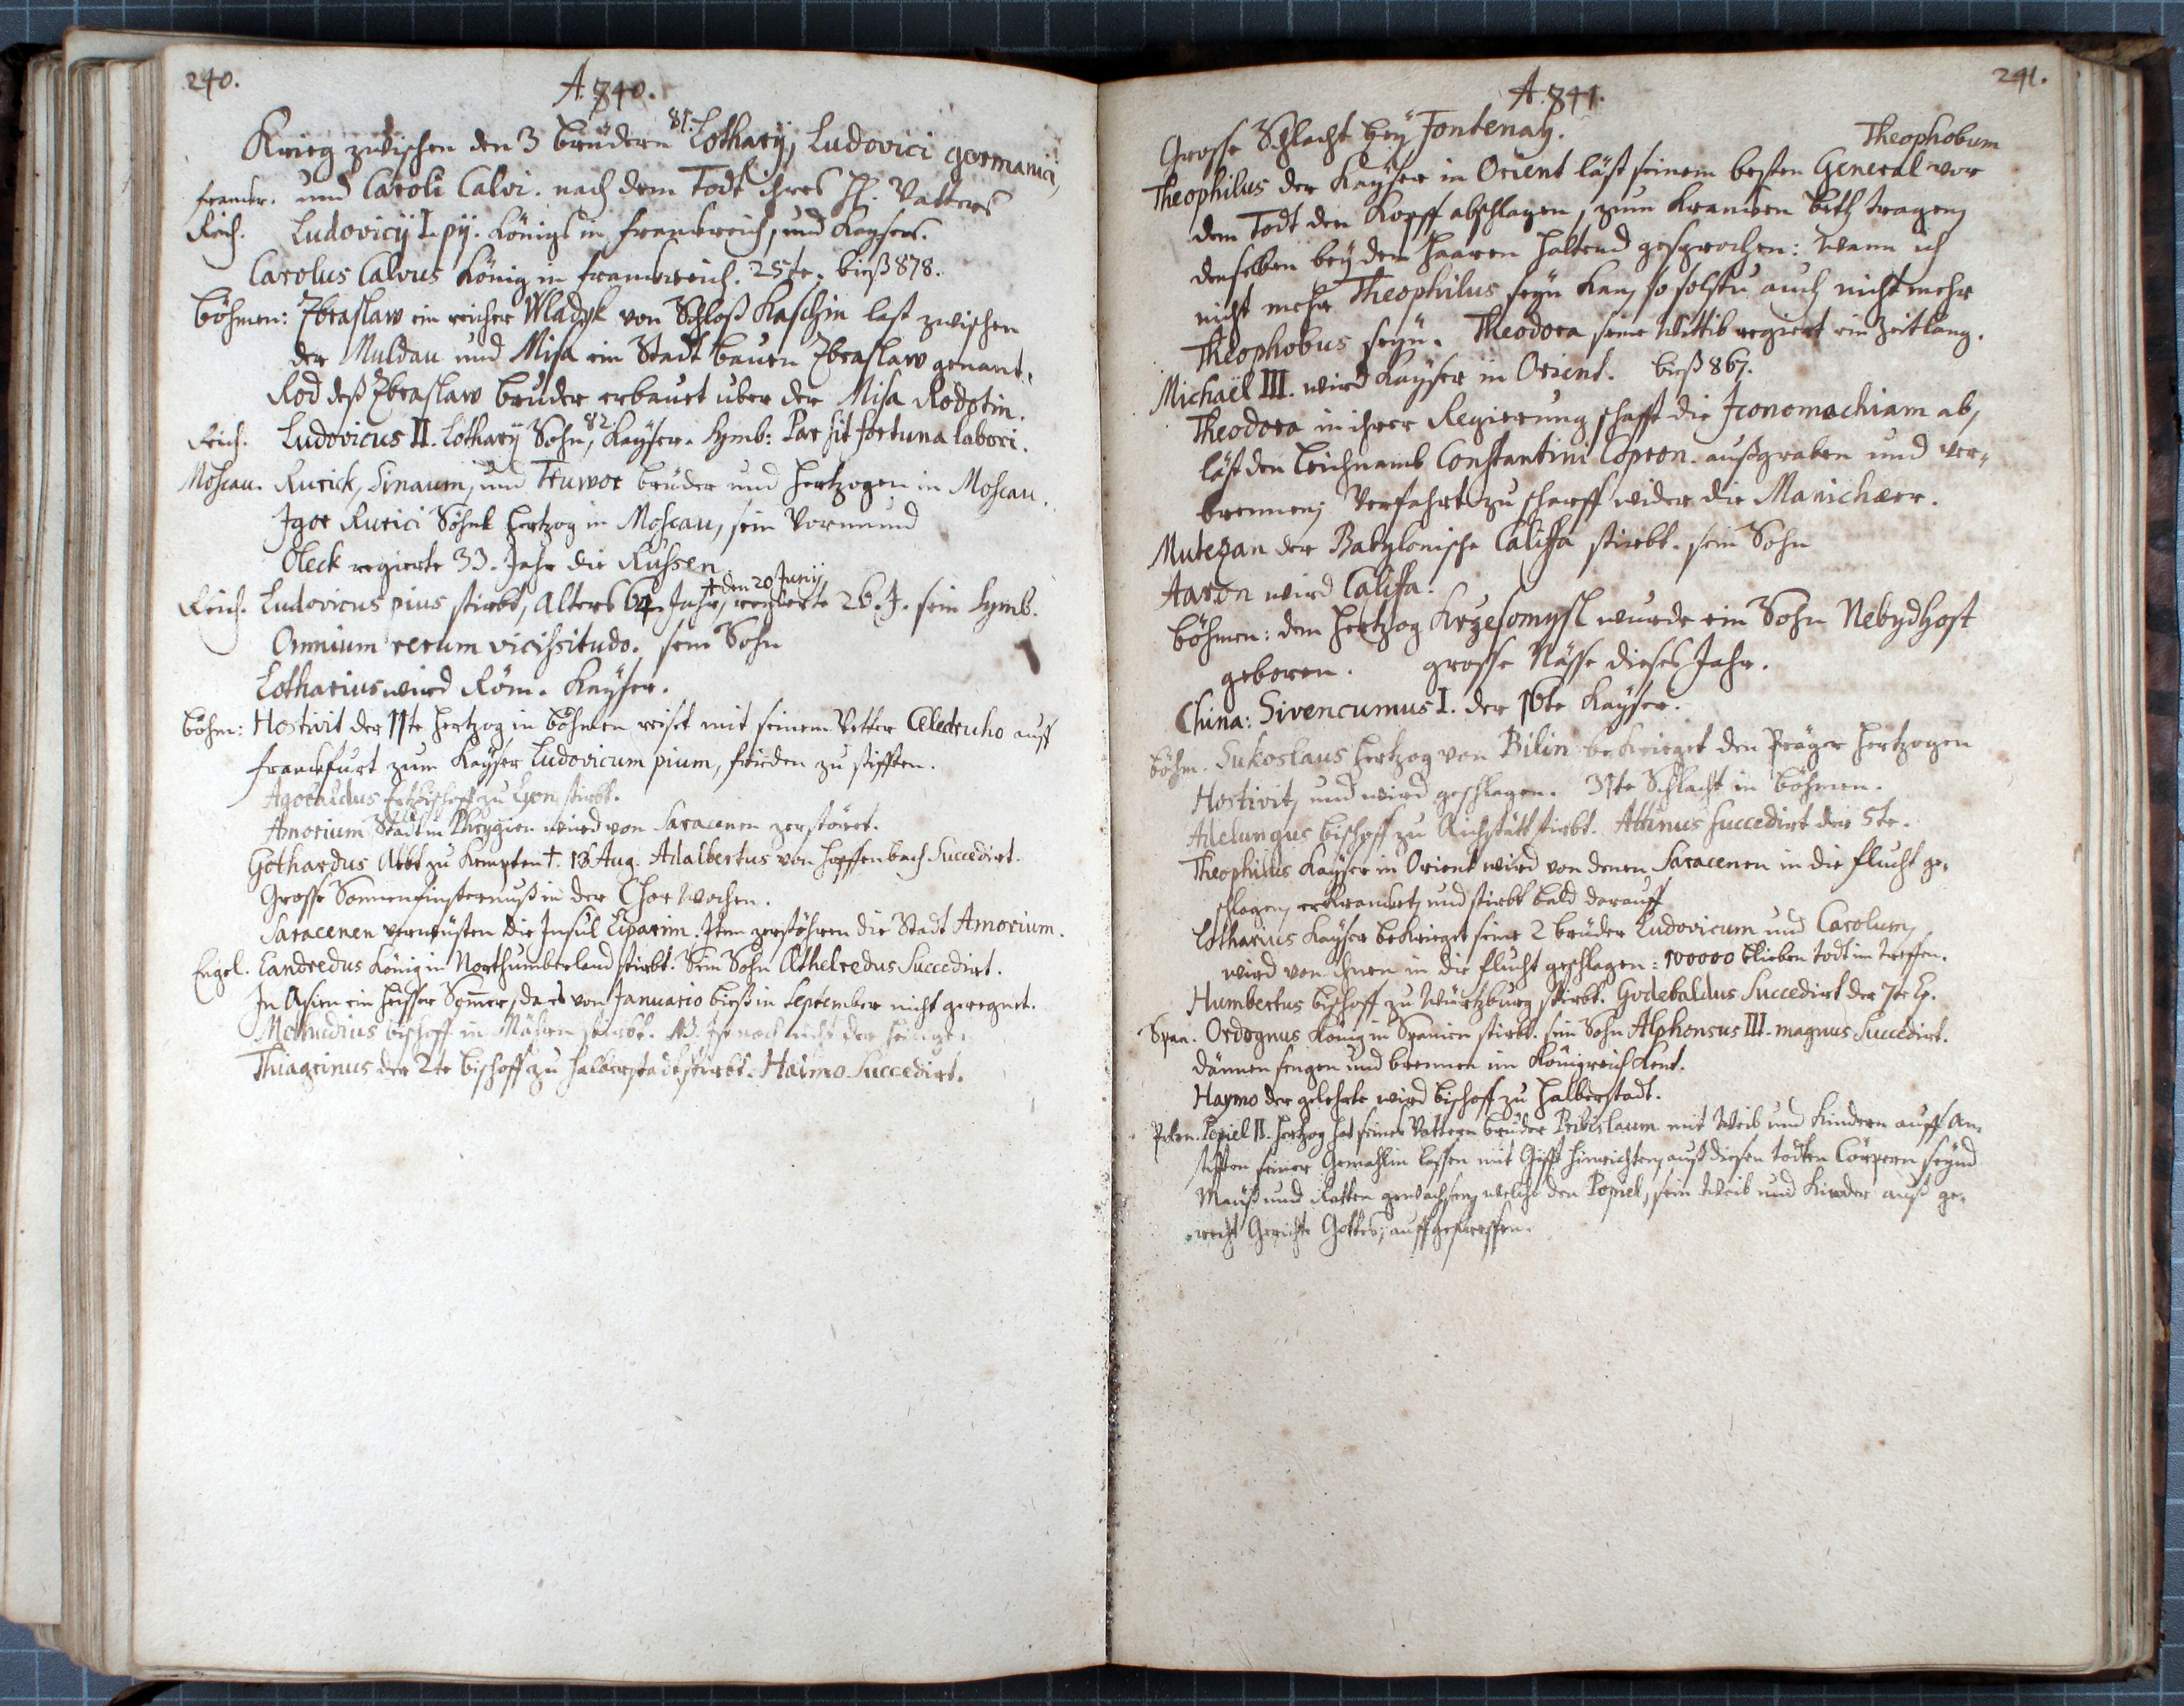 240.
A. 840.
Krieg zwischen den 3 brüdern 81. Lotharij, Ludovici germanici,
Franckr. und Caroli Calvi. nach dem Todt ihres H. Vatters
Reich. Ludovicij I. pij. Königs in Franckreich, und Kaysers.
Carolus Calvus König in Franckreich. 25te. bieß 878.
Böhmen: Zbraslaw ein reicher Wladyk von Schloß Kaschin last zwischen
der Muldau und Misa ein Stadt bauen Zbraslaw genant.
Rod deß Zbraslaw bruder erbauet uber der Misa Rodotin.
Reich. Ludovicus II. Lotharij Sohn, 82. Kayser. Symb: Par sit fortuna labori.
Moscau. Rurick, Sinaum, und Truwor brüder und Hertzogen in Moscau.
Igor Rurici Sohn Hertzog in Moscau, sein Vormund
Oleck regierte 33. Jahr die Russen.
† den 20 Junij
Reich. Ludovicus pius stirbt, Alters 64. Jahr, regierte 26. J. sein Symb.
Omnium rerum vicissitudo. sein Sohn
Lotharius wird Röm. Kayser.
Böhm: Hostivit der 11te Hertzog in Böhmen reiset mit seinem Vetter auff
Franckfurt zum Kayser Ludovicum pium, frieden zu stifften.
Agobaldus Ertzbischoff zu Lyon stirbt.
Amorium Stadt in Phrygien wird von Saracenen zerstöret.
Gothardus Abbt zu Kempten †. 13 Aug. Adalbertus von Hoffenbach Succedirt.
Grosse Sonnenfinsternuß in der Charwochen.
Saracenen verwüsten die Insul Liparim. Item zerstöhren die Stadt Amorium.
Engel. Eandredus König in Northumberland stirbt. Sein Sohn Athelredus Succedirt.
In Asien ein heisser Sommer, da es von Januario bieß in September nicht geregnet.
Methudius bischoff in Mähren stirbt. NB. Ist noch nicht der heilige.
Thiagrinus der 2te bischoff zu Halberstadt stirbt. Haimo Succedirt.
241.
A. 841.
Grosse Schlacht bey Fontenay.
Theophobum
Theophilus der Kayser in Orient läst seinem besten General vor
dem Todt den Kopff abschlagen, zum Krancken beth tragen,
denselben bey den Haaren haltend gesprochen: wann ich
nicht mehr Theophilus seyn kan, so solstu auch nicht mehr
Theophobus seyn. Theodora seine Wittib regiert ein Zeitlang.
Michaël III. wird Kayser in Orient. bieß 867.
Theodora in ihrer Regierung schafft die Iconomachiam ab,
läst den Leichnamb Constantini Copron. außgraben und ver-
brennen; Verfahrt zu scharff wider die Manichæer.
Mutezan der Babylonische Califfa stirbt. sein Sohn
Aaron wird Califfa.
Böhmen: dem Hertzog Krzesomysl wurde ein Sohn Nebydhost
geboren. grosse Nässe dieses Jahr.
China: Sivencumus I. der 16te Kayser.
Böhm. Sukoslaus Hertzog von Bilin bekrieget den Präger Hertzogen
Hostivit, und wird geschlagen. 31te Schlacht in Böhmen.
Adelungus bischoff zu Aichstätt stirbt. Altinus Succedirt der 5te.
Theophilus Kayser in Orient wird von denen Saracenen in die Flucht ge-
schlagen, erkrancket, und stirbt bald darauff.
Lotharius Kayser bekrieget seine 2 brüder Ludovicum und Carolum,
wird von ihnen in die flucht geschlagen: 100000 blieben todt im treffen.
Humbertus bischoff zu Würtzburg stirbt. Godebaldus Succedirt der 7te Ep.
Span. Ordognus König in Spanien stirbt. sein Sohn Alphonsus III. magnus Succedirt.
Dännen sengen und brennen im Königreich Kent.
Haymo der gelehrte wird bischoff zu Halberstadt.
Polen. Popiel II. Hertzog hat seines Vattern bruder mit Weib und Kindern auff An-
stifften seiner Gemahlin lassen mit Gifft hinrichten, auß diesen todten Cörpern seynd
Mäuß und Ratten gewachsen, welche den Popiel, sein Weib und Kinder auß ge-
recht Gerichte Gottes, auffgefressen.